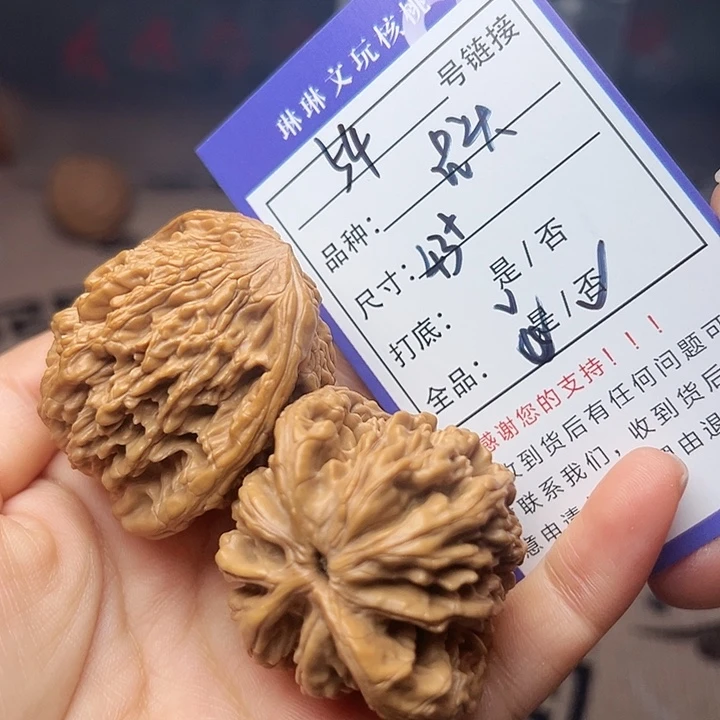 琳琳文玩核桃
54 号链接
品种：
尺寸：43+
打底： 是/否
全品： 是/否
感谢您的支持！！！
收到货后有任何问题可
联系我们，收到货后
意申请 由退